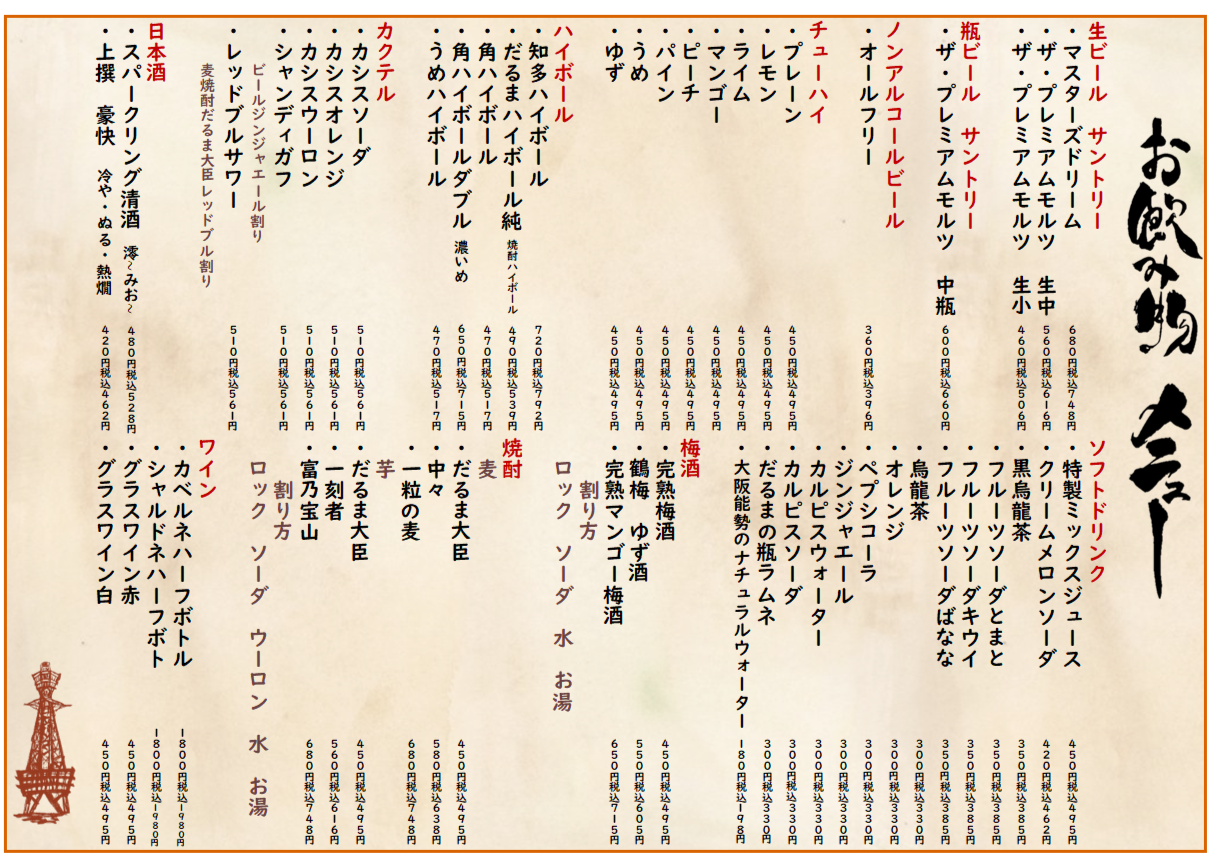 お飲み物
生ビール　サントリー
・マスターズドリーム　680円税込748円
・ザ・プレミアムモルツ　生中　560円税込616円
・ザ・プレミアムモルツ　生小　460円税込506円
瓶ビール　サントリー
・ザ・プレミアムモルツ　中瓶　600円税込660円
ノンアルコールビール
・オールフリー　360円税込396円
チューハイ
・プレーン　450円税込495円
・レモン　450円税込495円
・ライム　450円税込495円
・マンゴー　450円税込495円
・ピーチ　450円税込495円
・パイン　450円税込495円
・うめ　450円税込495円
・ゆず　450円税込495円
ハイボール
・知多ハイボール　720円税込792円
・だるまハイボール純　焼酎ハイボール　490円税込539円
・角ハイボール　470円税込517円
・角ハイボールダブル　濃いめ　650円税込715円
・うめハイボール　470円税込517円
カクテル
・カシスソーダ　510円税込561円
・カシスオレンジ　510円税込561円
・カシスウーロン　510円税込561円
・シャンディガフ　510円税込561円
ビールジンジャエール割り
・レッドブルサワー　510円税込561円
麦焼酎だるま大臣レッドブル割り
日本酒
・スパークリング清酒　澪~みお~　480円税込528円
・上撰　豪快　冷や・ぬる・熱燗　420円税込462円
ソフトドリンク
・特製ミックスジュース　450円税込495円
・クリームメロンソーダ　420円税込462円
・黒烏龍茶　350円税込385円
・フルーツソーダとまと　350円税込385円
・フルーツソーダキウイ　350円税込385円
・フルーツソーダばなな　350円税込385円
・烏龍茶　300円税込330円
・オレンジ　300円税込330円
・ペプシコーラ　300円税込330円
・ジンジャエール　300円税込330円
・カルピスウォーター　300円税込330円
・カルピスソーダ　300円税込330円
・だるまの瓶ラムネ　300円税込330円
・大阪能勢のナチュラルウォーター　180円税込198円
梅酒
・完熟梅酒　450円税込495円
・鶴梅　ゆず酒　550円税込605円
・完熟マンゴー梅酒　650円税込715円
割り方
ロック　ソーダ　水　お湯
焼酎
麦
・だるま大臣　450円税込495円
・中々　580円税込638円
・一粒の麦　680円税込748円
芋
・だるま大臣　450円税込495円
・一刻者　560円税込616円
・富乃宝山　680円税込748円
割り方
ロック　ソーダ　ウーロン　水　お湯
ワイン
・カベルネハーフボトル　1800円税込1980円
・シャルドネハーフボト　1800円税込1980円
・グラスワイン赤　450円税込495円
・グラスワイン白　450円税込495円